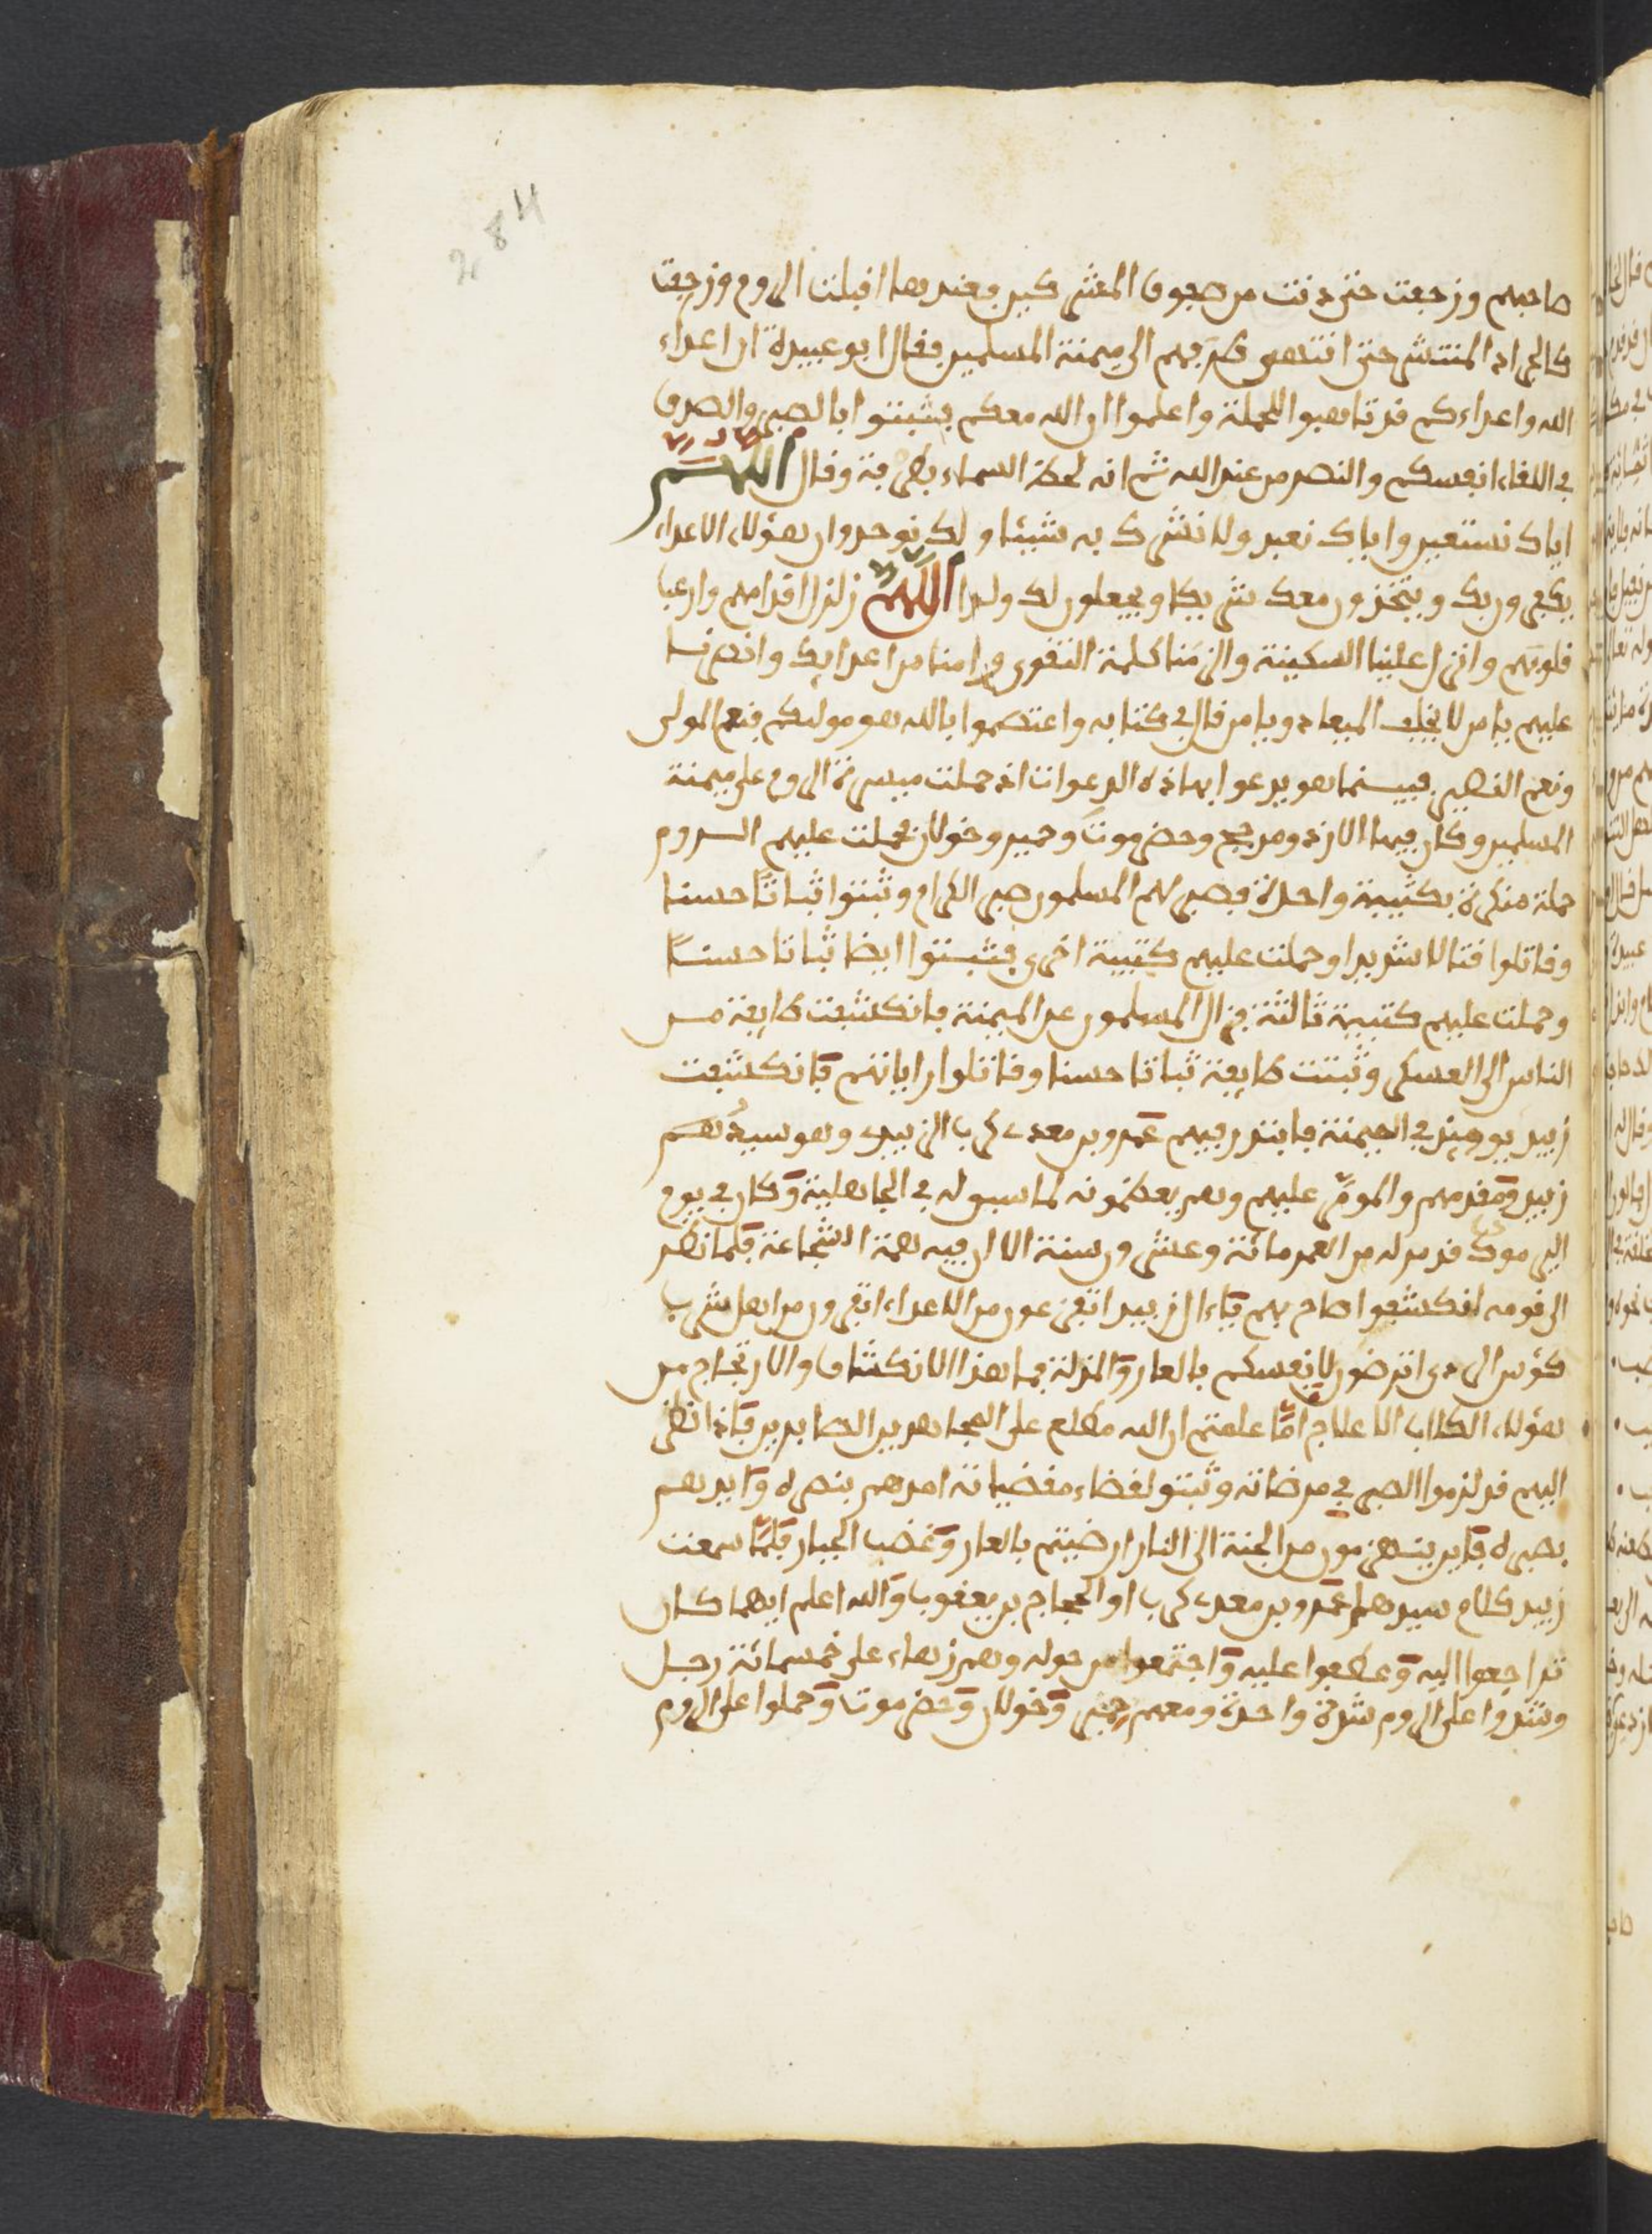 284
صاحبهم وزحفت حتى دنت من صفوف المشركين فعندها اقبلت الروم وزحفت
كالجراد المنتشر حتى انتهى طرفهم الى ميمنة المسلمين فقال ابو عبيدة ان اعداء
الله واعداءكم قد تاهبوا للحملة واعلموا ان الله معكم فثبتوا بالصبر والصدق
في اللقاء انفسكم والنصر من عند الله ثم انه لحظ السماء بطرفه وقال اللهم
اياك نستعين واياك نعبد ولا نشرك به شيئا ولك نوحد وان هؤلاء الاعداء
يكفرون بك ويتخذون معك شريكا ويجعلون لك ولدا اللهم زلزل اقدامهم وارعب
قلوبهم وانزل علينا السكينة والزمنا كلمة التقوى وامنا من اعدايك وانصرنا
عليهم يا من لا يخلف الميعاد ويا من قال في كتابه واعتصموا بالله هو موليكم فنعم المولى
ونعم النصير فبينما هو يدعو بهاذه الدعوات اذ حملت ميسرة الروم على ميمنة
المسلمين وكان فيها الازد ومذحج وحضرموت وحمير وخولان فحملت عليهم الروم
حملة منكرة بكتيبة واحدة فصبر لهم المسلمون صبر الكرام وثبتوا ثباتا حسنا
وقاتلوا قتالا شديدا وحملت عليهم كتيبة اخرى فثبتوا ايضا ثباتا حسنا
وحملت عليهم كتيبة ثالثة فزال المسلمون عن الميمنة فانكشفت طايفة من
الناس الى العسكر وثبتت طايفة ثباتا حسنا وقاتلوا راياتهم فانكشفت
زبيد يومئذ في الميمنة فابتدر فيهم عمرو بن معدى كرب الزبيدى وهو سيدهم
زبيد ومقدمهم والمومر عليهم وهم يعظمونه لما سبق له في الجاهلية وكان في يوم
اليرموك قد مر له من العمر مائة وعشرون سنة الا ان فيه همة الشجاعة فلما نظر
الى قومه انكشفوا صاح بهم يا ءال زبيد اتفزعون من الاعداء اتفرون من اهل شرب
كؤس الردى اترضون لانفسكم بالعار والمذلة فما هذا الانكشاف والارتجاج من
هؤلاء الكلاب الاعلاج اما علمتم ان الله مطلع على المجاهدين الصابرين فاذا نظر
اليهم قد لزموا الصبر في مرضاته وثبتوا لقضاء مقضياته امدهم بنصره وايدهم
بصبره فاين تنهزمون من الجنة الى النار ارضيتم بالعار وغضب الجبار فلما سمعت
زبيد كلام سيدهم عمرو بن معدى كرب او الحجاج بن يعقوب والله اعلم ايهما كان
تراجعوا اليه وعطفوا عليه واجتمعوا من حوله وهم زهاء على خمسمائة رجل
وشدوا على الروم شدة واحدة ومعهم حمير وخولان وحضرموت وحملوا على الروم